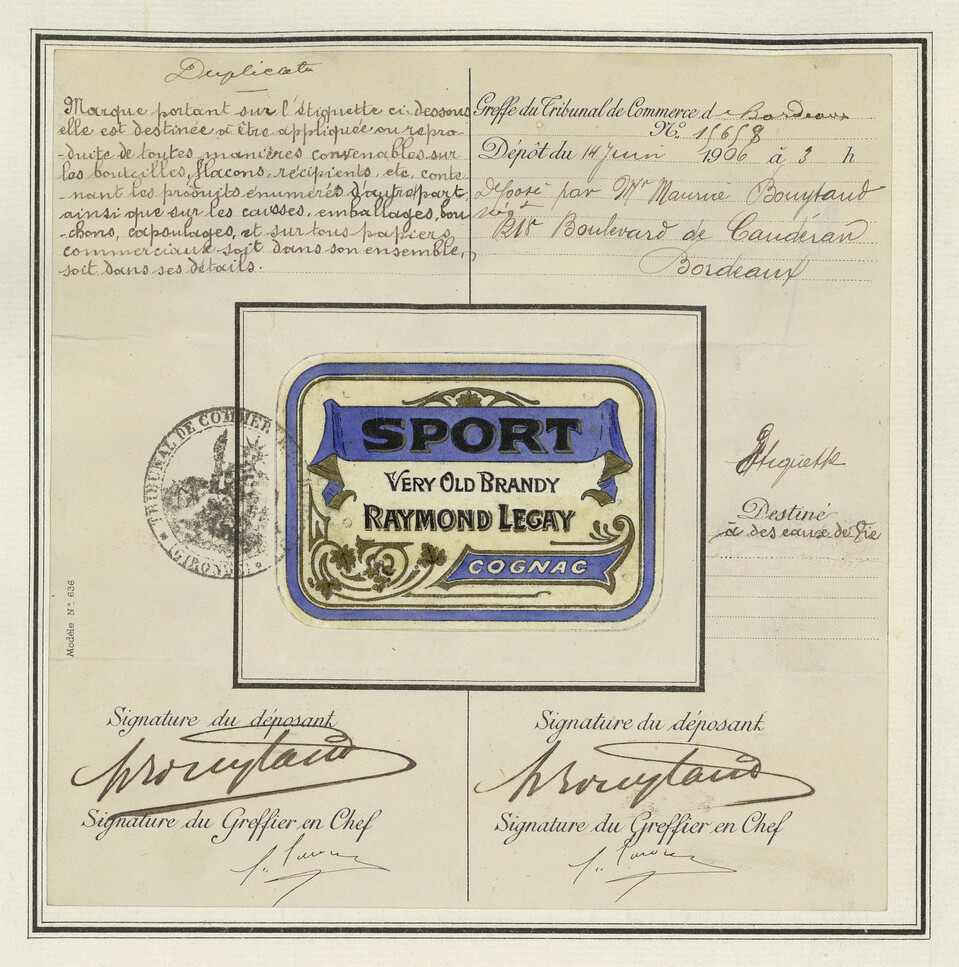 Duplicata
Marque portant sur l'étiquette ci-dessous
elle est destinée à être appliquée ou repro-
-duite de toutes manières convenables sur
les bouteilles, flacons, récipients, etc, conte-
nant les produits énumérés d'autre part,
ainsi que sur les caisses, emballages, bou-
-chons, capsulages, et sur tous papiers
commerciaux soit dans son ensemble,
soit dans ses détails.
Greffe du Tribunal de Commerce de Bordeaux
N°. 15658
Dépôt du 14 Juin 1906 à 3 h
Déposé par Mr Maurice Bouytaud
négt
218 Boulevard de Caudéran
Bordeaux
TRIBUNAL DE COMMER
GIRONDE
SPORT
VERY OLD BRANDY
RAYMOND LEGAY
COGNAC
Etiquette
Destiné
à des eaux de Vie
Modèle N° 636
Signature du déposant
MBouytaud
Signature du Greffier en Chef
Signature du déposant
MBouytaud
Signature du Greffier en Chef